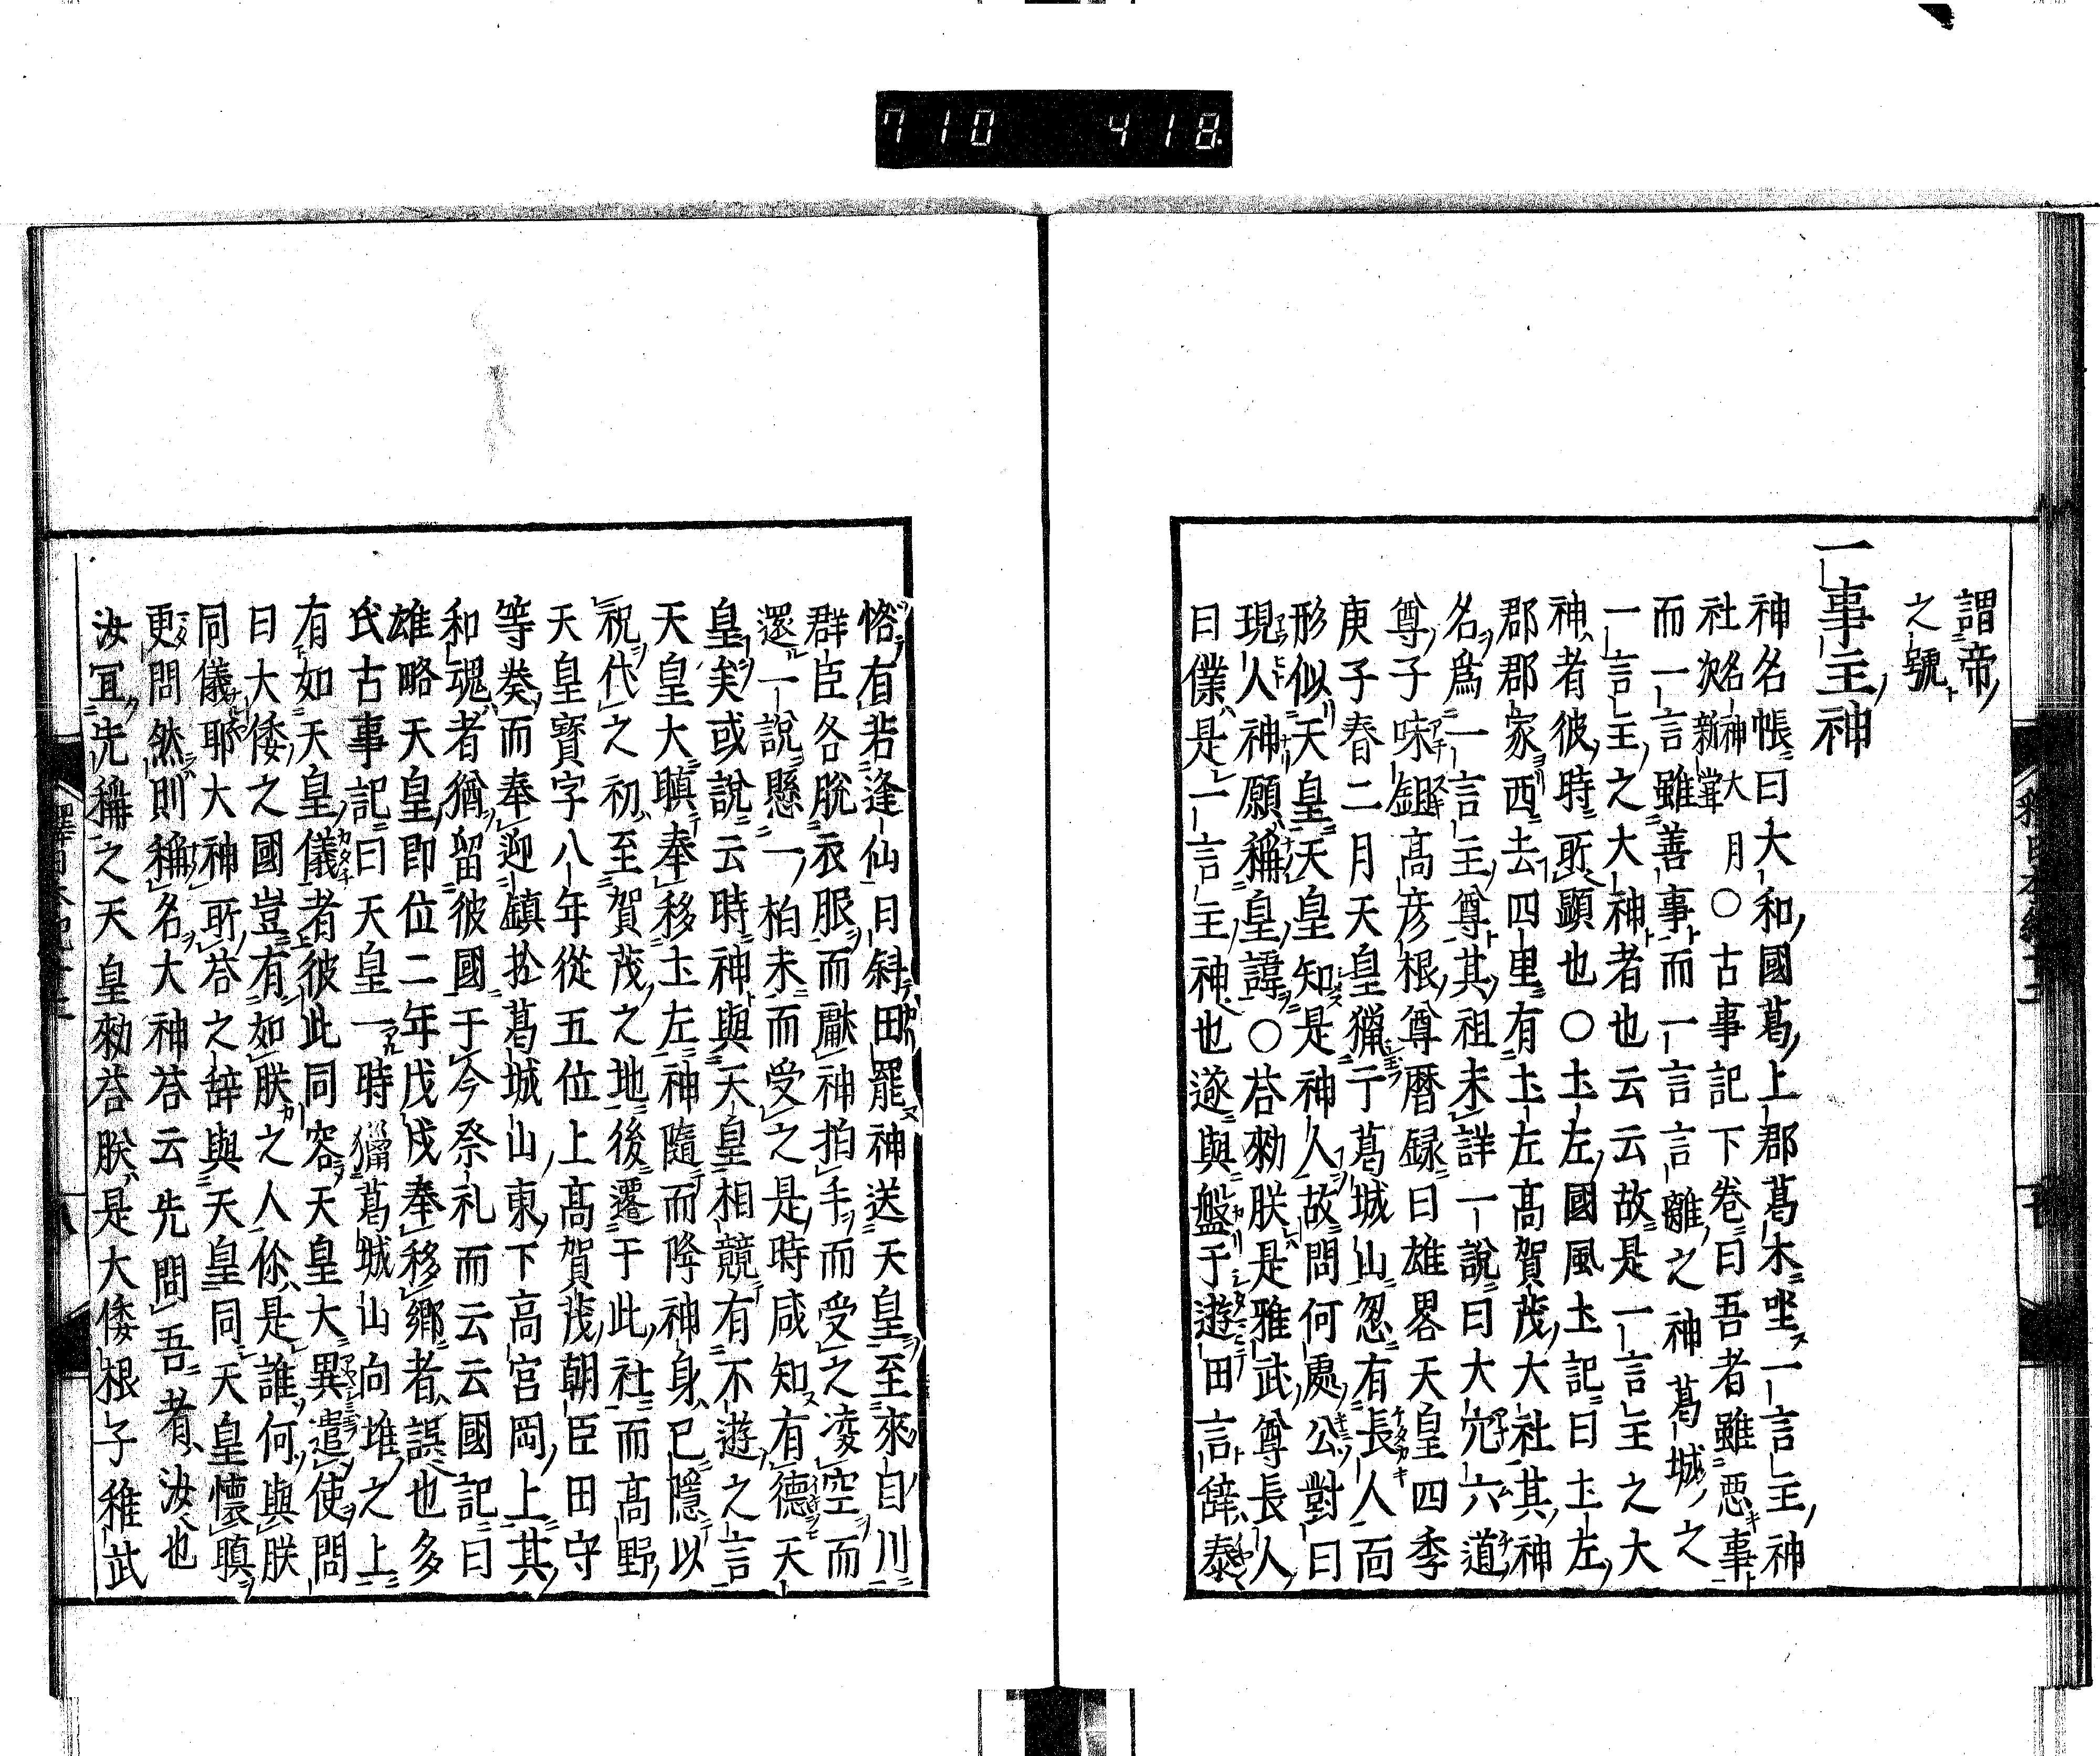 710 418
謂帝
之號
一事主神
神名帳曰大和國葛上郡葛木坐一言主神
社名神大月次新嘗〇古事記下巻曰吾者雖悪事
而一言雖善事而一言言離之神葛城之
一言主之大神者也云云故是一言主之大
神者彼時所顯也〇土左國風土記曰土左
郡郡家西去四里有土左高賀茂大社其神
名爲一言主尊其祖未詳一說曰大穴六道
尊子味鉏高彦根尊暦録曰雄畧天皇四季
庚子春二月天皇獵于葛城山忽有長人面
形似天皇天皇知是神人故問何處公對曰
現人神願稱皇諱〇荅勑朕是雅武尊長人
曰僕是一言主神也遂與盤于遊田言辝泰
恪有若逢仙日斜田罷神送天皇至來自川
群臣各脫衣服而獻神拍手而受之凌空而
還一說懸一柏未而受之是時咸知有德天
皇矣或說云時神與天皇相競有不遜之言
天皇大瞋奉移土左神隨而降神身已隱以
祝代之初至賀茂之地後遷于此社而高野
天皇寳字八年從五位上高賀茂朝臣田守
等奏而奉迎鎮於葛城山東下高宮岡上其
和魂者猶留彼國于今祭礼而云云國記曰
雄略天皇即位二年戊戌奉移鄉者誤也多
氏古事記曰天皇一時獵葛城山向堆之上
有如天皇儀者彼此同容天皇大異遣使問
曰大倭之國豈有如朕之人你是誰何與朕
同儀耶大神所荅之辞與天皇同天皇懷瞋
更問然則稱名大神荅云先問吾者汝也
汝冝先稱之天皇勑荅朕是大倭根子稚武